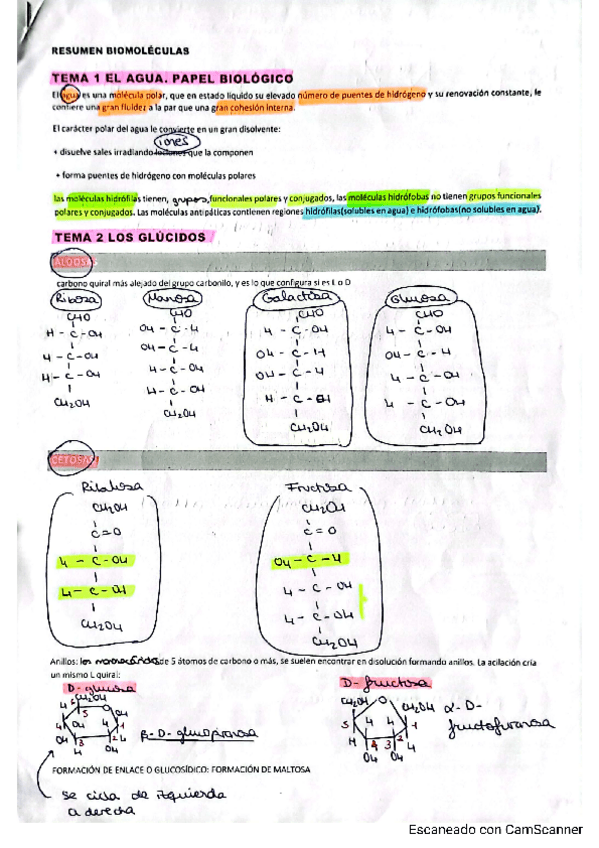 RESUMEN BIOMOLÉCULAS
TEMA 1 EL AGUA. PAPEL BIOLÓGICO
El agua es una molécula polar, que en estado líquido su elevado número de puentes de hidrógeno y su renovación constante, le
confiere una gran fluidez a la par que una gran cohesión interna.
El carácter polar del agua le convierte en un gran disolvente:
iones
+ disuelve sales irradiando que la componen
+ forma puentes de hidrógeno con moléculas polares
las moléculas hidrófilas tienen, grupos, funcionales polares y conjugados, las moléculas hidrófobas no tienen grupos funcionales
polares y conjugados. Las moléculas antipáticas contienen regiones hidrófilas(solubles en agua) e hidrofobas(no solubles en agua).
TEMA 2 LOS GLÚCIDOS
ALDOSAS
carbono quiral más alejado del grupo carbonilo, y es lo que configura si es L o D
Ribosa Manosa Galactosa Glucosa
CHO CHO CHO CHO
H - C - OH OH - C - H H - C - OH H - C - OH
H - C - OH OH - C - H OH - C - H OH - C - H
H - C - OH H - C - OH OH - C - H H - C - OH
CH2OH H - C - OH H - C - OH H - C - OH
CH2OH CH2OH CH2OH
CETOSAS
Ribulosa Fructosa
CH2OH CH2OH
C = O C = O
H - C - OH OH - C - H
H - C - OH H - C - OH
CH2OH H - C - OH
CH2OH
Anillos: los monosacáridos de 5 átomos de carbono o más, se suelen encontrar en disolución formando anillos. La acilación cría
un mismo L quiral:
D - glucosa D - fructosa
CH2OH CH2OH O CH2OH α - D -
β - D - glucopiranosa fructofuranosa
FORMACIÓN DE ENLACE O GLUCOSÍDICO: FORMACIÓN DE MALTOSA
se cicla de izquierda
a derecha
Escaneado con CamScanner